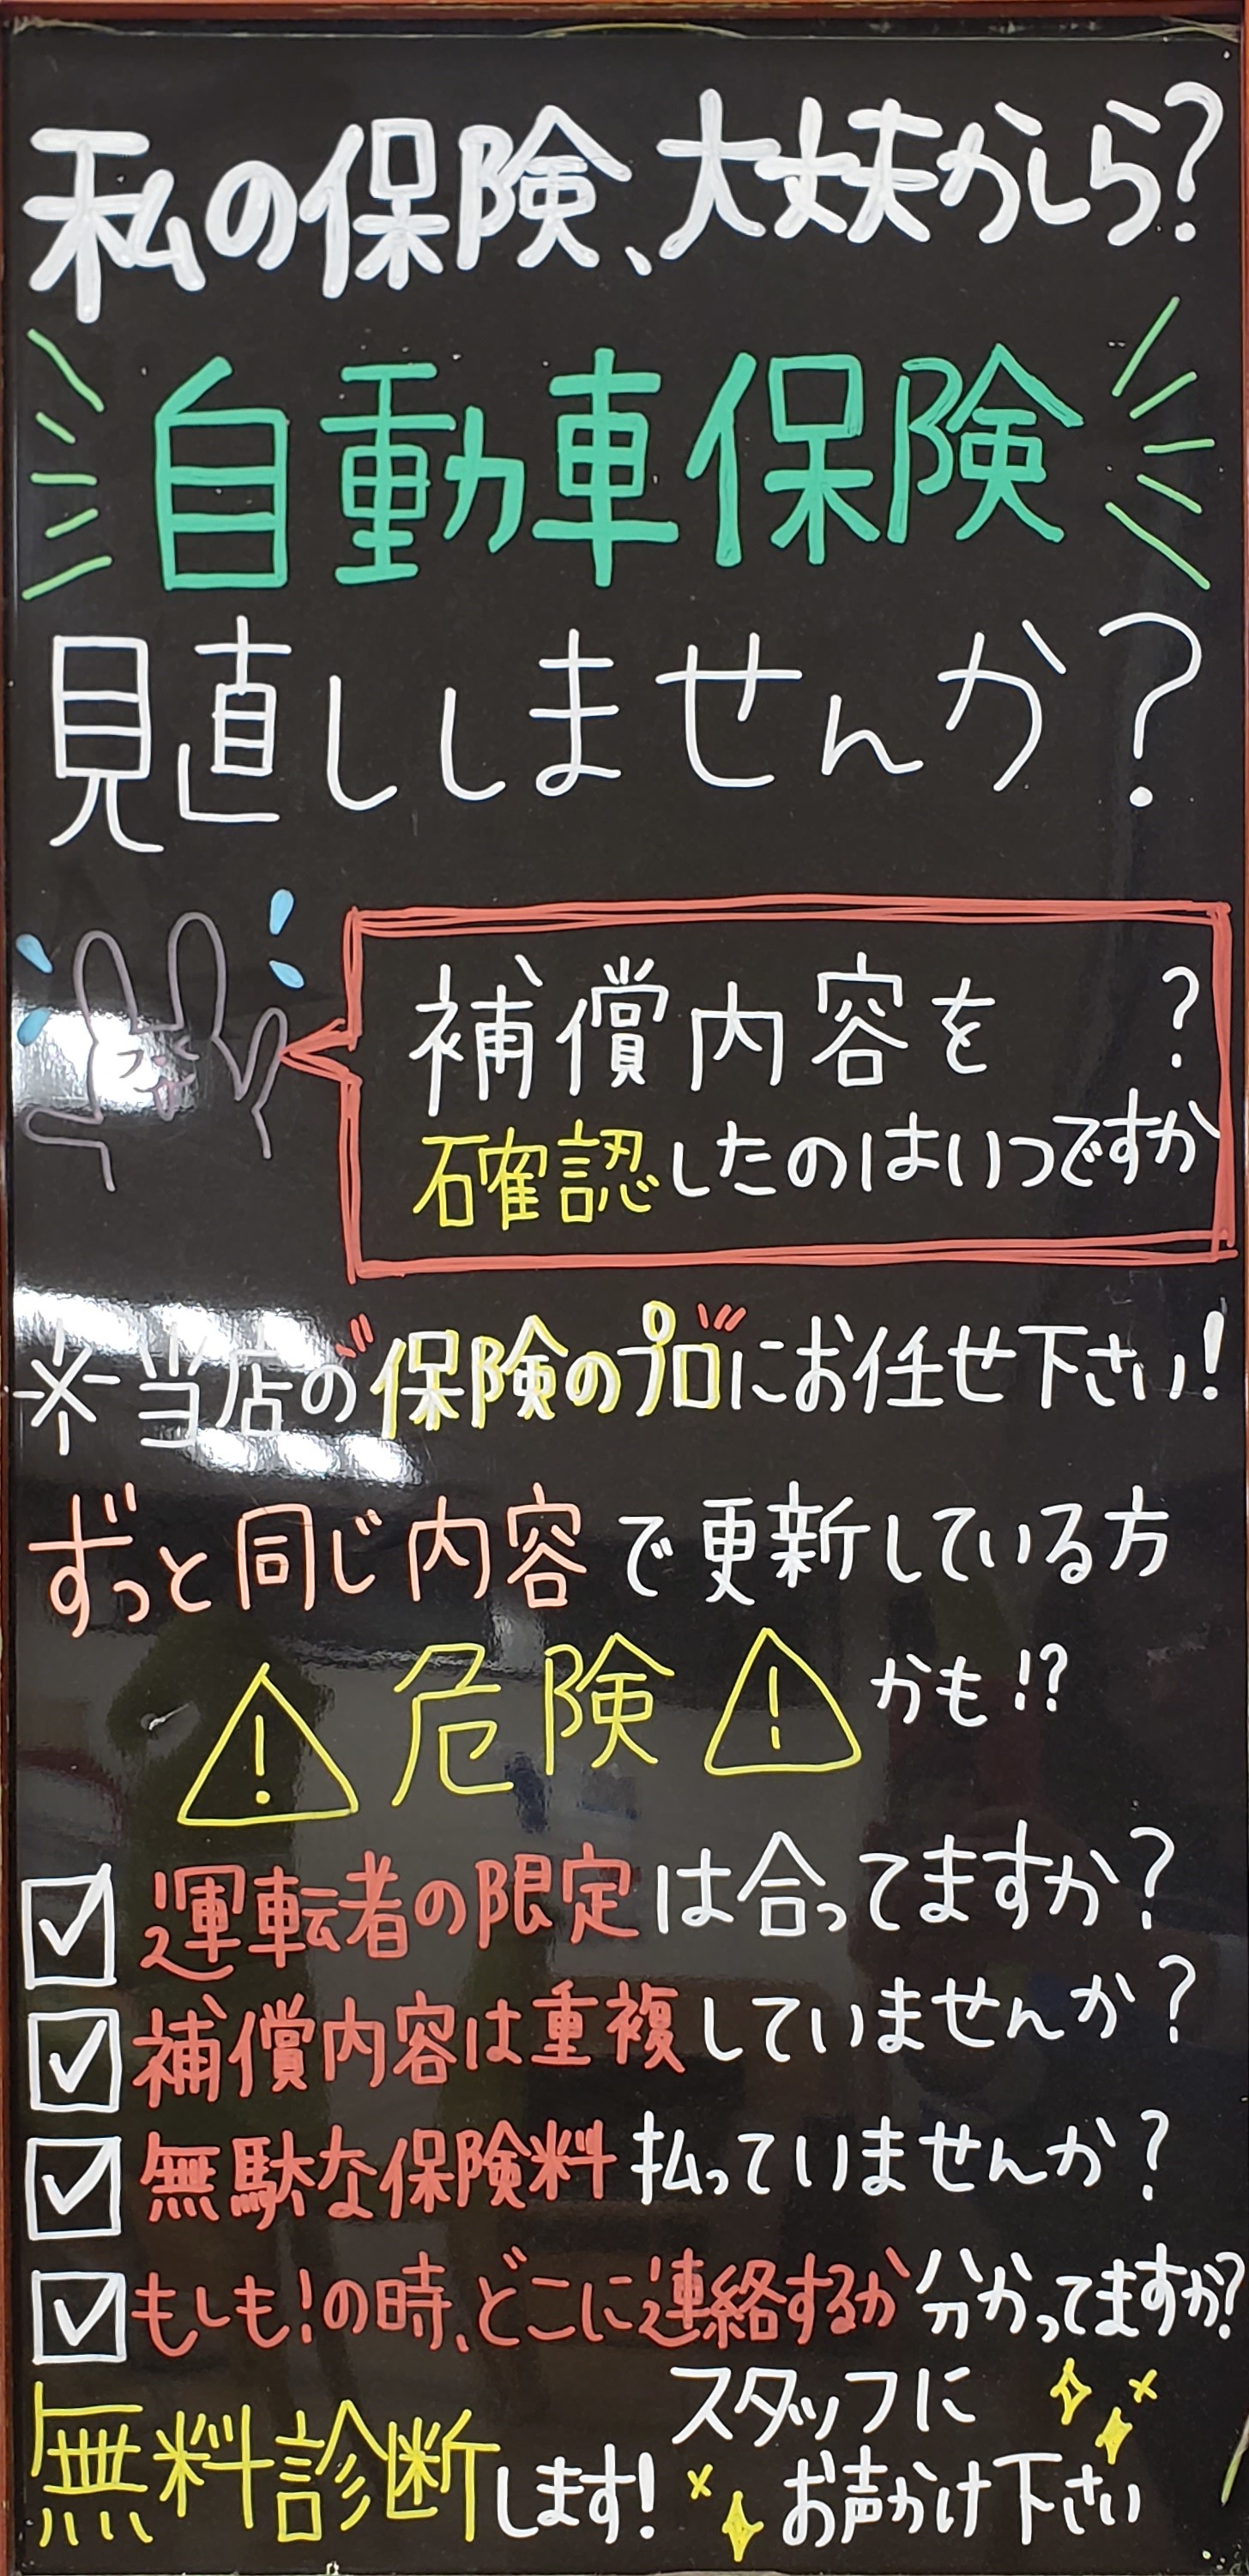 私の保険、大丈夫かしら?
自動車保険
見直ししませんか?
補償内容を
確認したのはいつですか?
※当店の"保険のプロ"にお任せ下さい!
ずっと同じ内容で更新している方
⚠危険⚠かも!?
☑運転者の限定は合ってますか?
☑補償内容は重複していませんか?
☑無駄な保険料払っていませんか?
☑もしも!の時、どこに連絡するか分かってますか?
無料診断します!
スタッフに
お声かけ下さい